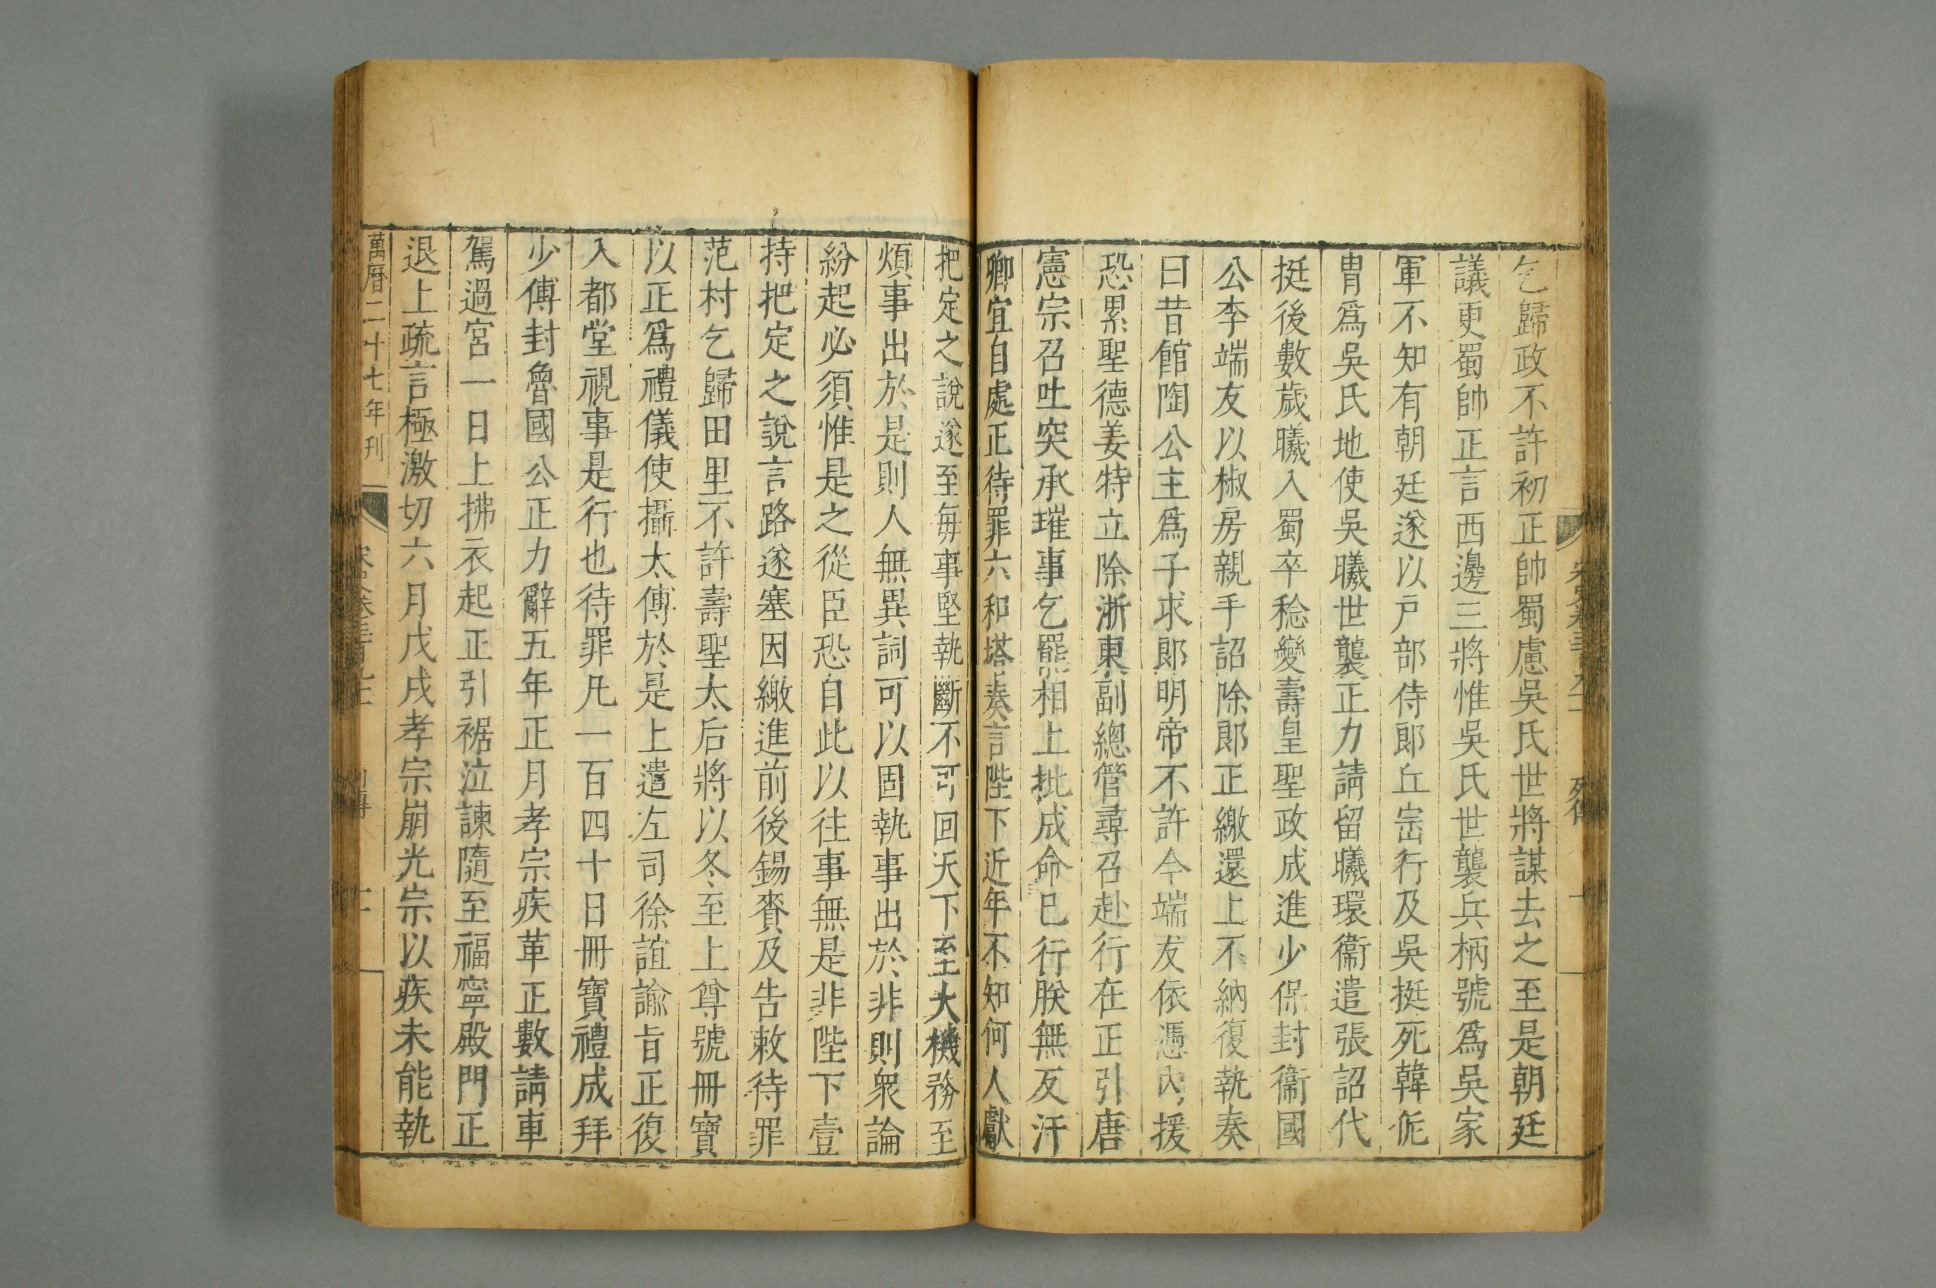 乞歸政不許初正帥蜀慮吳氏世將謀去之至是朝廷
議更蜀帥正言西邊三將惟吳氏世襲兵柄號爲吳家
軍不知有朝廷遂以戸部侍郎丘崈行及吳挺死韓侂
胄爲吳氏地使吳曦世襲正力請留曦環衞遣張詔代
挺後數歲曦入蜀卒稔變壽皇聖政成進少保封衞國
公李端友以椒房親手詔除郎正繳還上不納復執奏
曰昔館陶公主爲子求郎明帝不許今端友依憑內援
恐累聖德姜特立除浙東副總管尋召赴行在正引唐
憲宗召吐突承璀事乞罷相上批成命已行朕無反汗
卿宜自處正待罪六和塔奏言陛下近年不知何人獻
把定之說遂至每事堅執斷不可回天下至大機務至
煩事出於是則人無異詞可以固執事出於非則衆論
紛起必須惟是之從臣恐自此以往事無是非陛下壹
持把定之說言路遂塞因繳進前後錫賚及告敕待罪
范村乞歸田里不許壽聖太后將以冬至上尊號冊寶
以正爲禮儀使攝太傅於是上遣左司徐誼諭旨正復
入都堂視事是行也待罪凡一百四十日冊寶禮成拜
少傅封魯國公正力辭五年正月孝宗疾革正數請車
駕過宮一日上拂衣起正引裾泣諫隨至福寧殿門正
退上疏言極激切六月戊戌孝宗崩光宗以疾未能執
萬曆二十七年刊